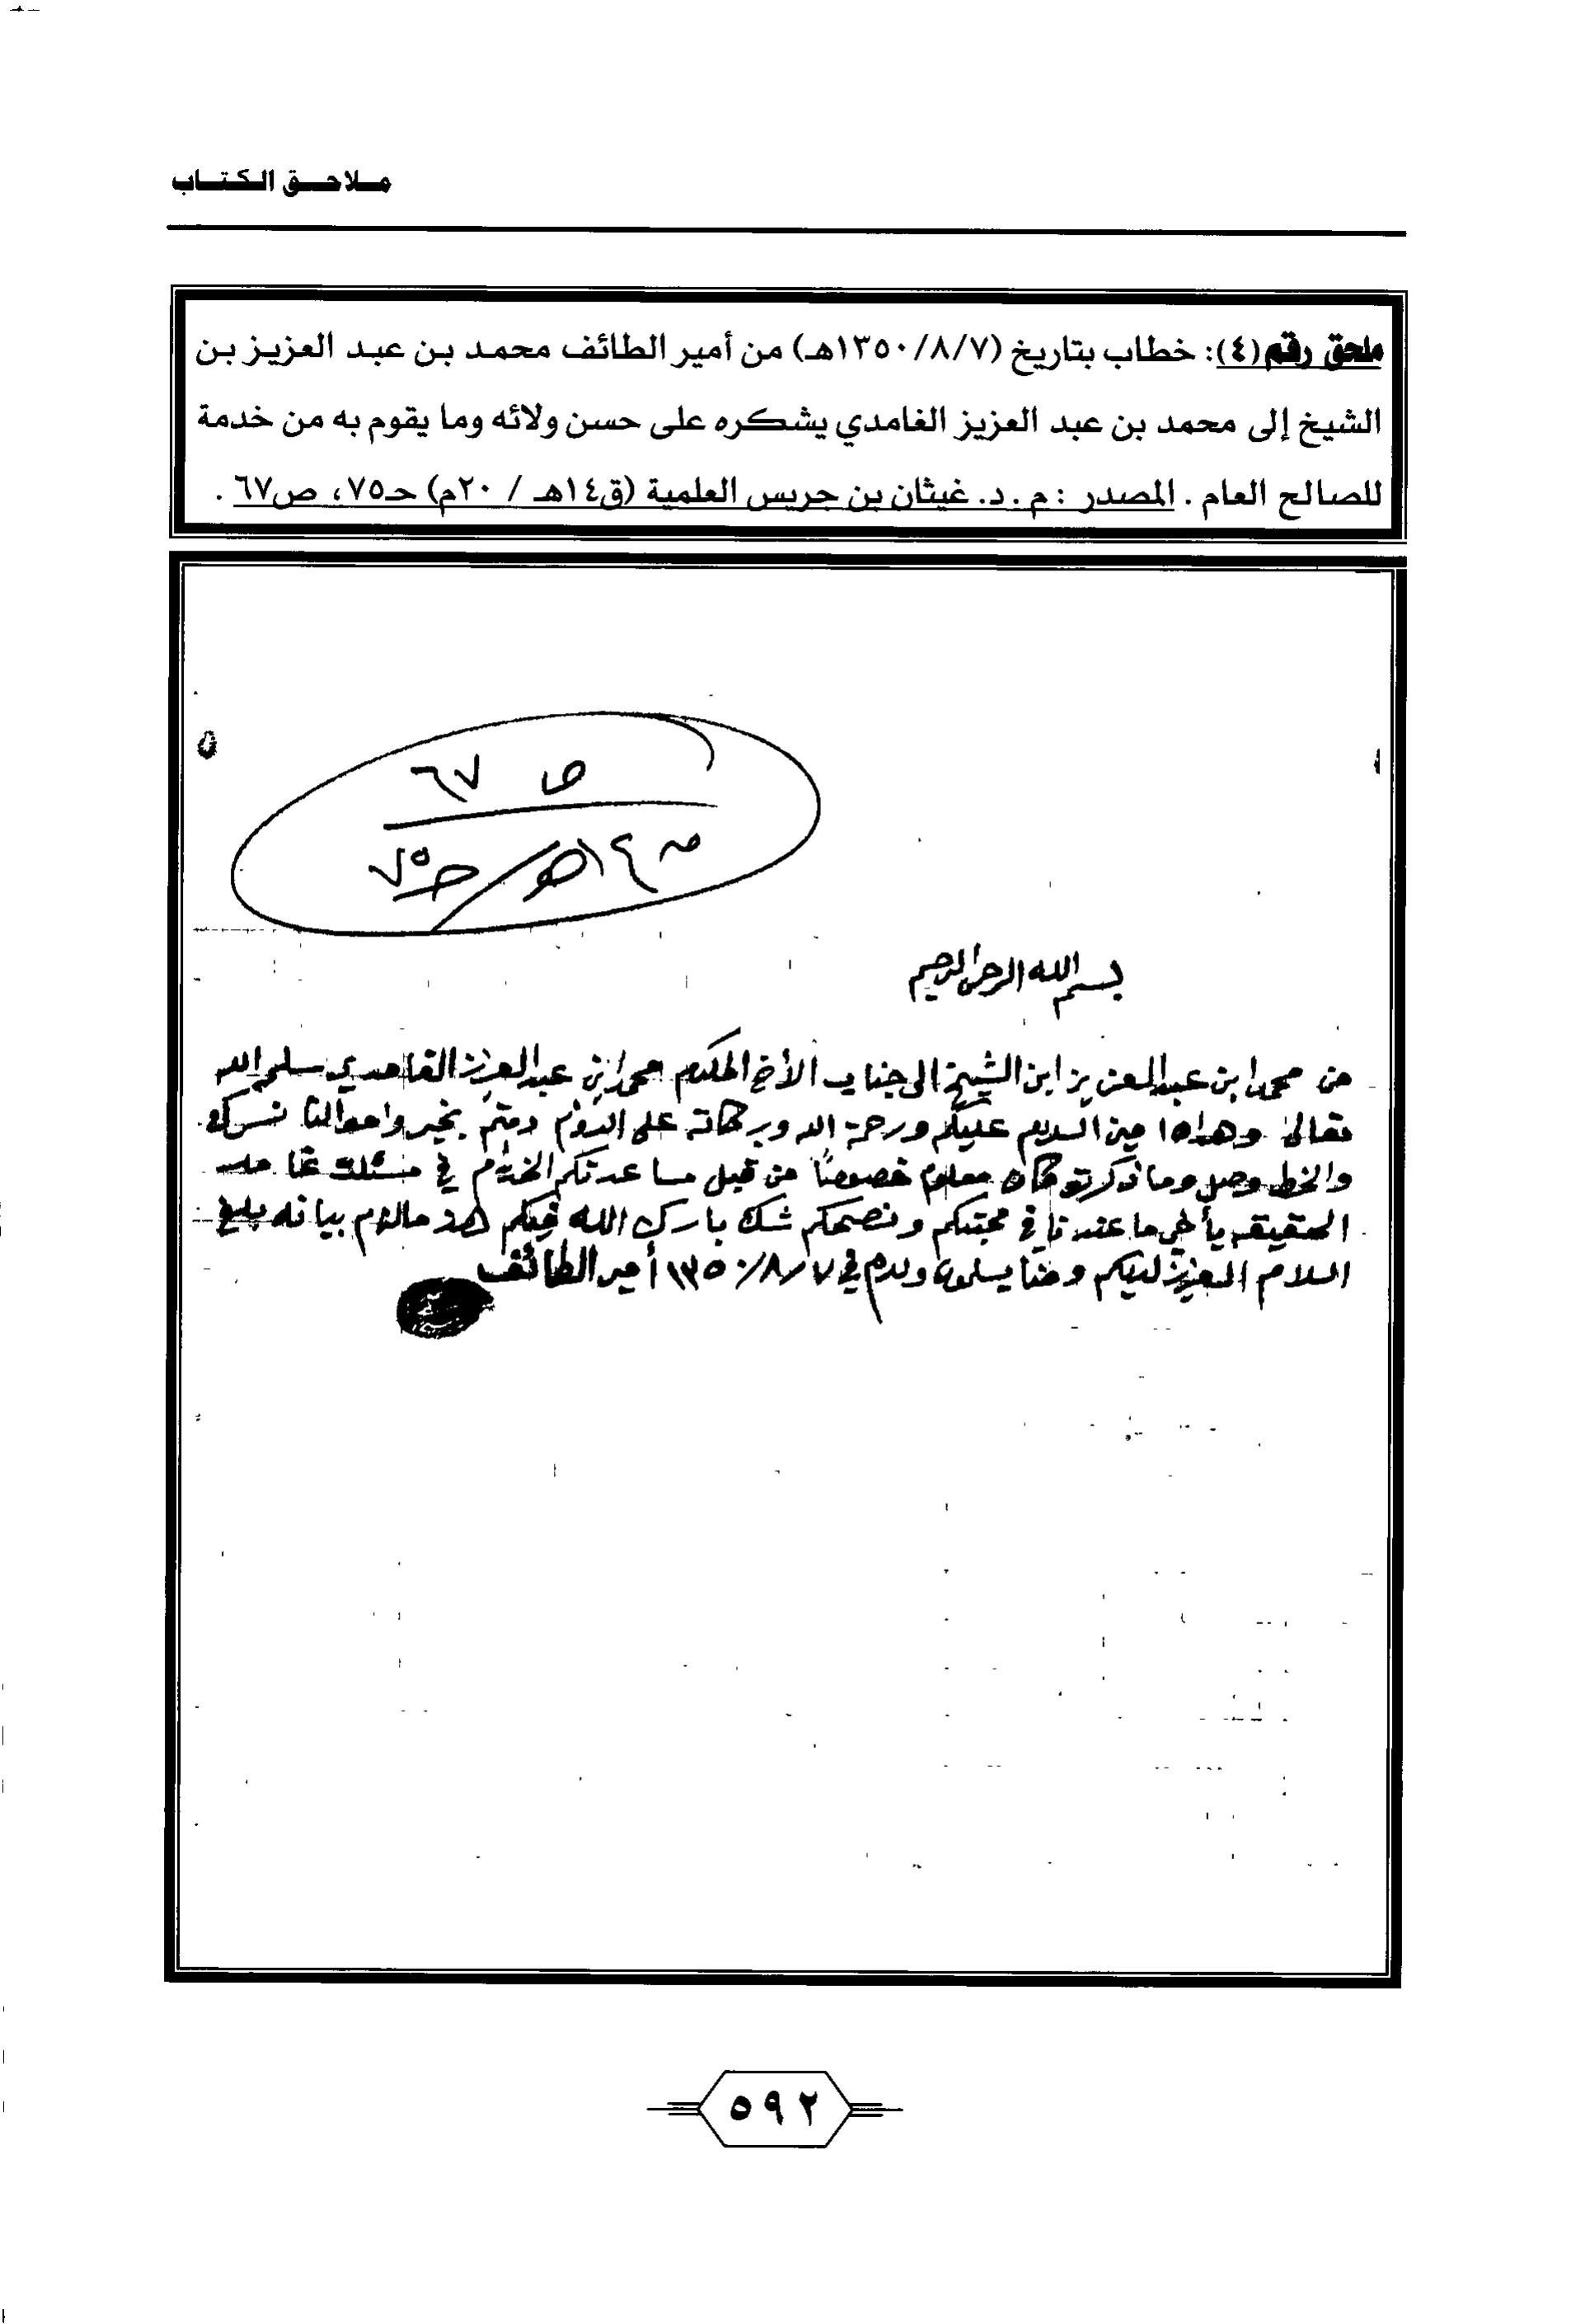 ملاحق الكتاب
ملحق رقم (٤): خطاب بتاريخ (١٣٥٠/٨/٧هـ) من أمير الطائف محمد بن عبد العزيز بن
الشيخ إلى محمد بن عبد العزيز الغامدي يشكره على حسن ولائه وما يقوم به من خدمة
للصالح العام . المصدر : م . د. غيثان بن جريس العلمية (ق١٤هـ / ٢٠م) حـ٧٥، ص٦٧ .
ص ٦٧
١٤هـ / حـ ٧٥
بسم الله الرحمن الرحيم
من محمد ابن عبد العزيز ابن الشيخ الى جناب الأخ المكرم محمد ابن عبد العزيز الغامدي سلمه الله
تعالى وهداه امين السلام عليكم ورحمة الله وبركاته على الدوام دمتم بخير واحوالنا تسرك
والخط وصل وما ذكرتو كان معلوم خصوصاً من قبل مساعدتكم الخدام في مسئلت
الحقيقه يأخي ما عندنا في محبتكم ونصحكم شك بارك الله فيكم هذ مالزم بيانه بلغ
السلام العزيز لديكم ومنا يسلمون ودم في ١٣٥٠/٨/٧ أمير الطائف
٥٩٢